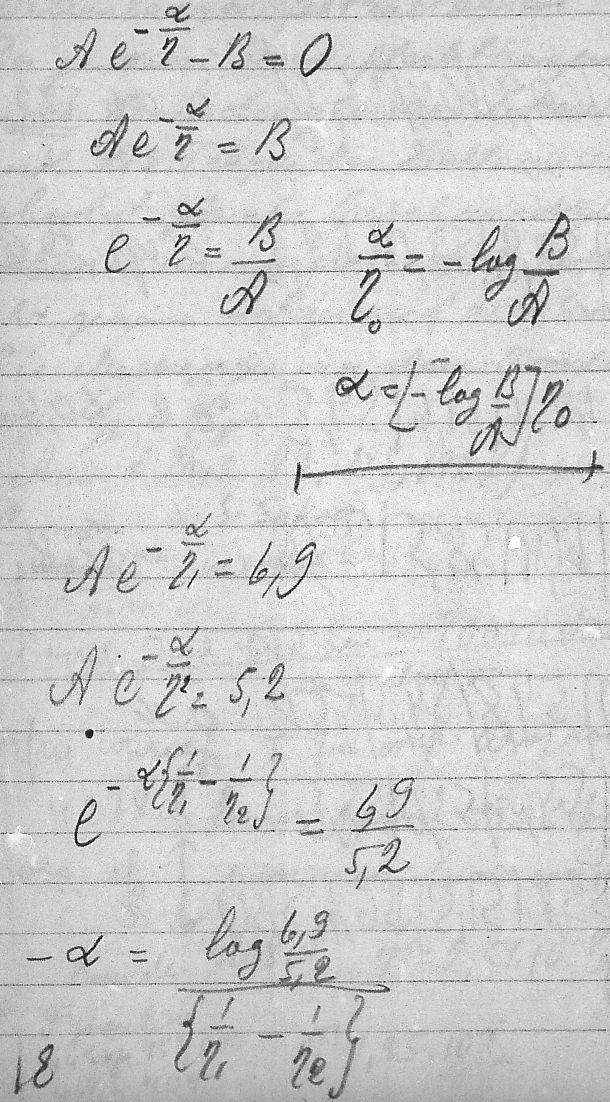 A e^{-α/η} - B = 0
A e^{-α/η} = B
e^{-α/η} = B/A    α/η₀ = -log B/A
α = [-log B/A] η₀
A e^{-α/η₁} = 6,9
A e^{-α/η₂} = 5,2
e^{-α{1/η₁ - 1/η₂}} = 6,9/5,2
-α = log 6,9/5,2 / {1/η₁ - 1/η₂}
18